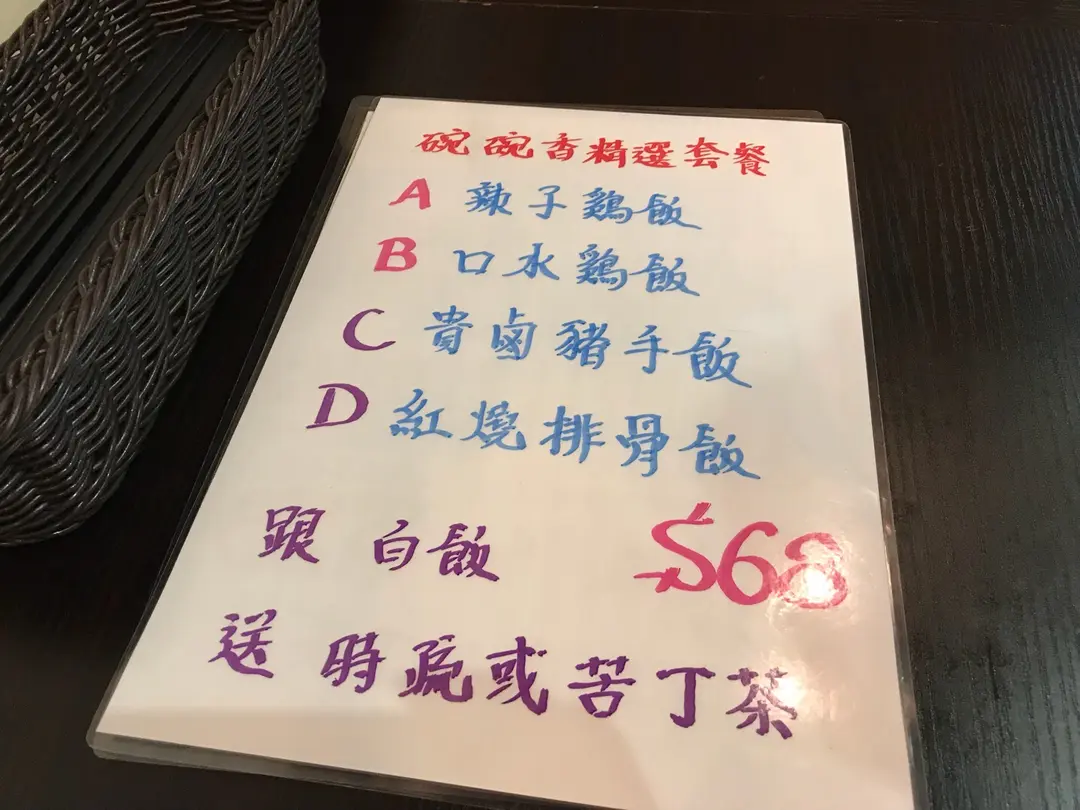 碗碗香精選套餐
A 辣子鷄飯
B 口水鷄飯
C 貴鹵豬手飯
D 紅燒排骨飯
跟 白飯 $68
送 時疏或苦丁茶